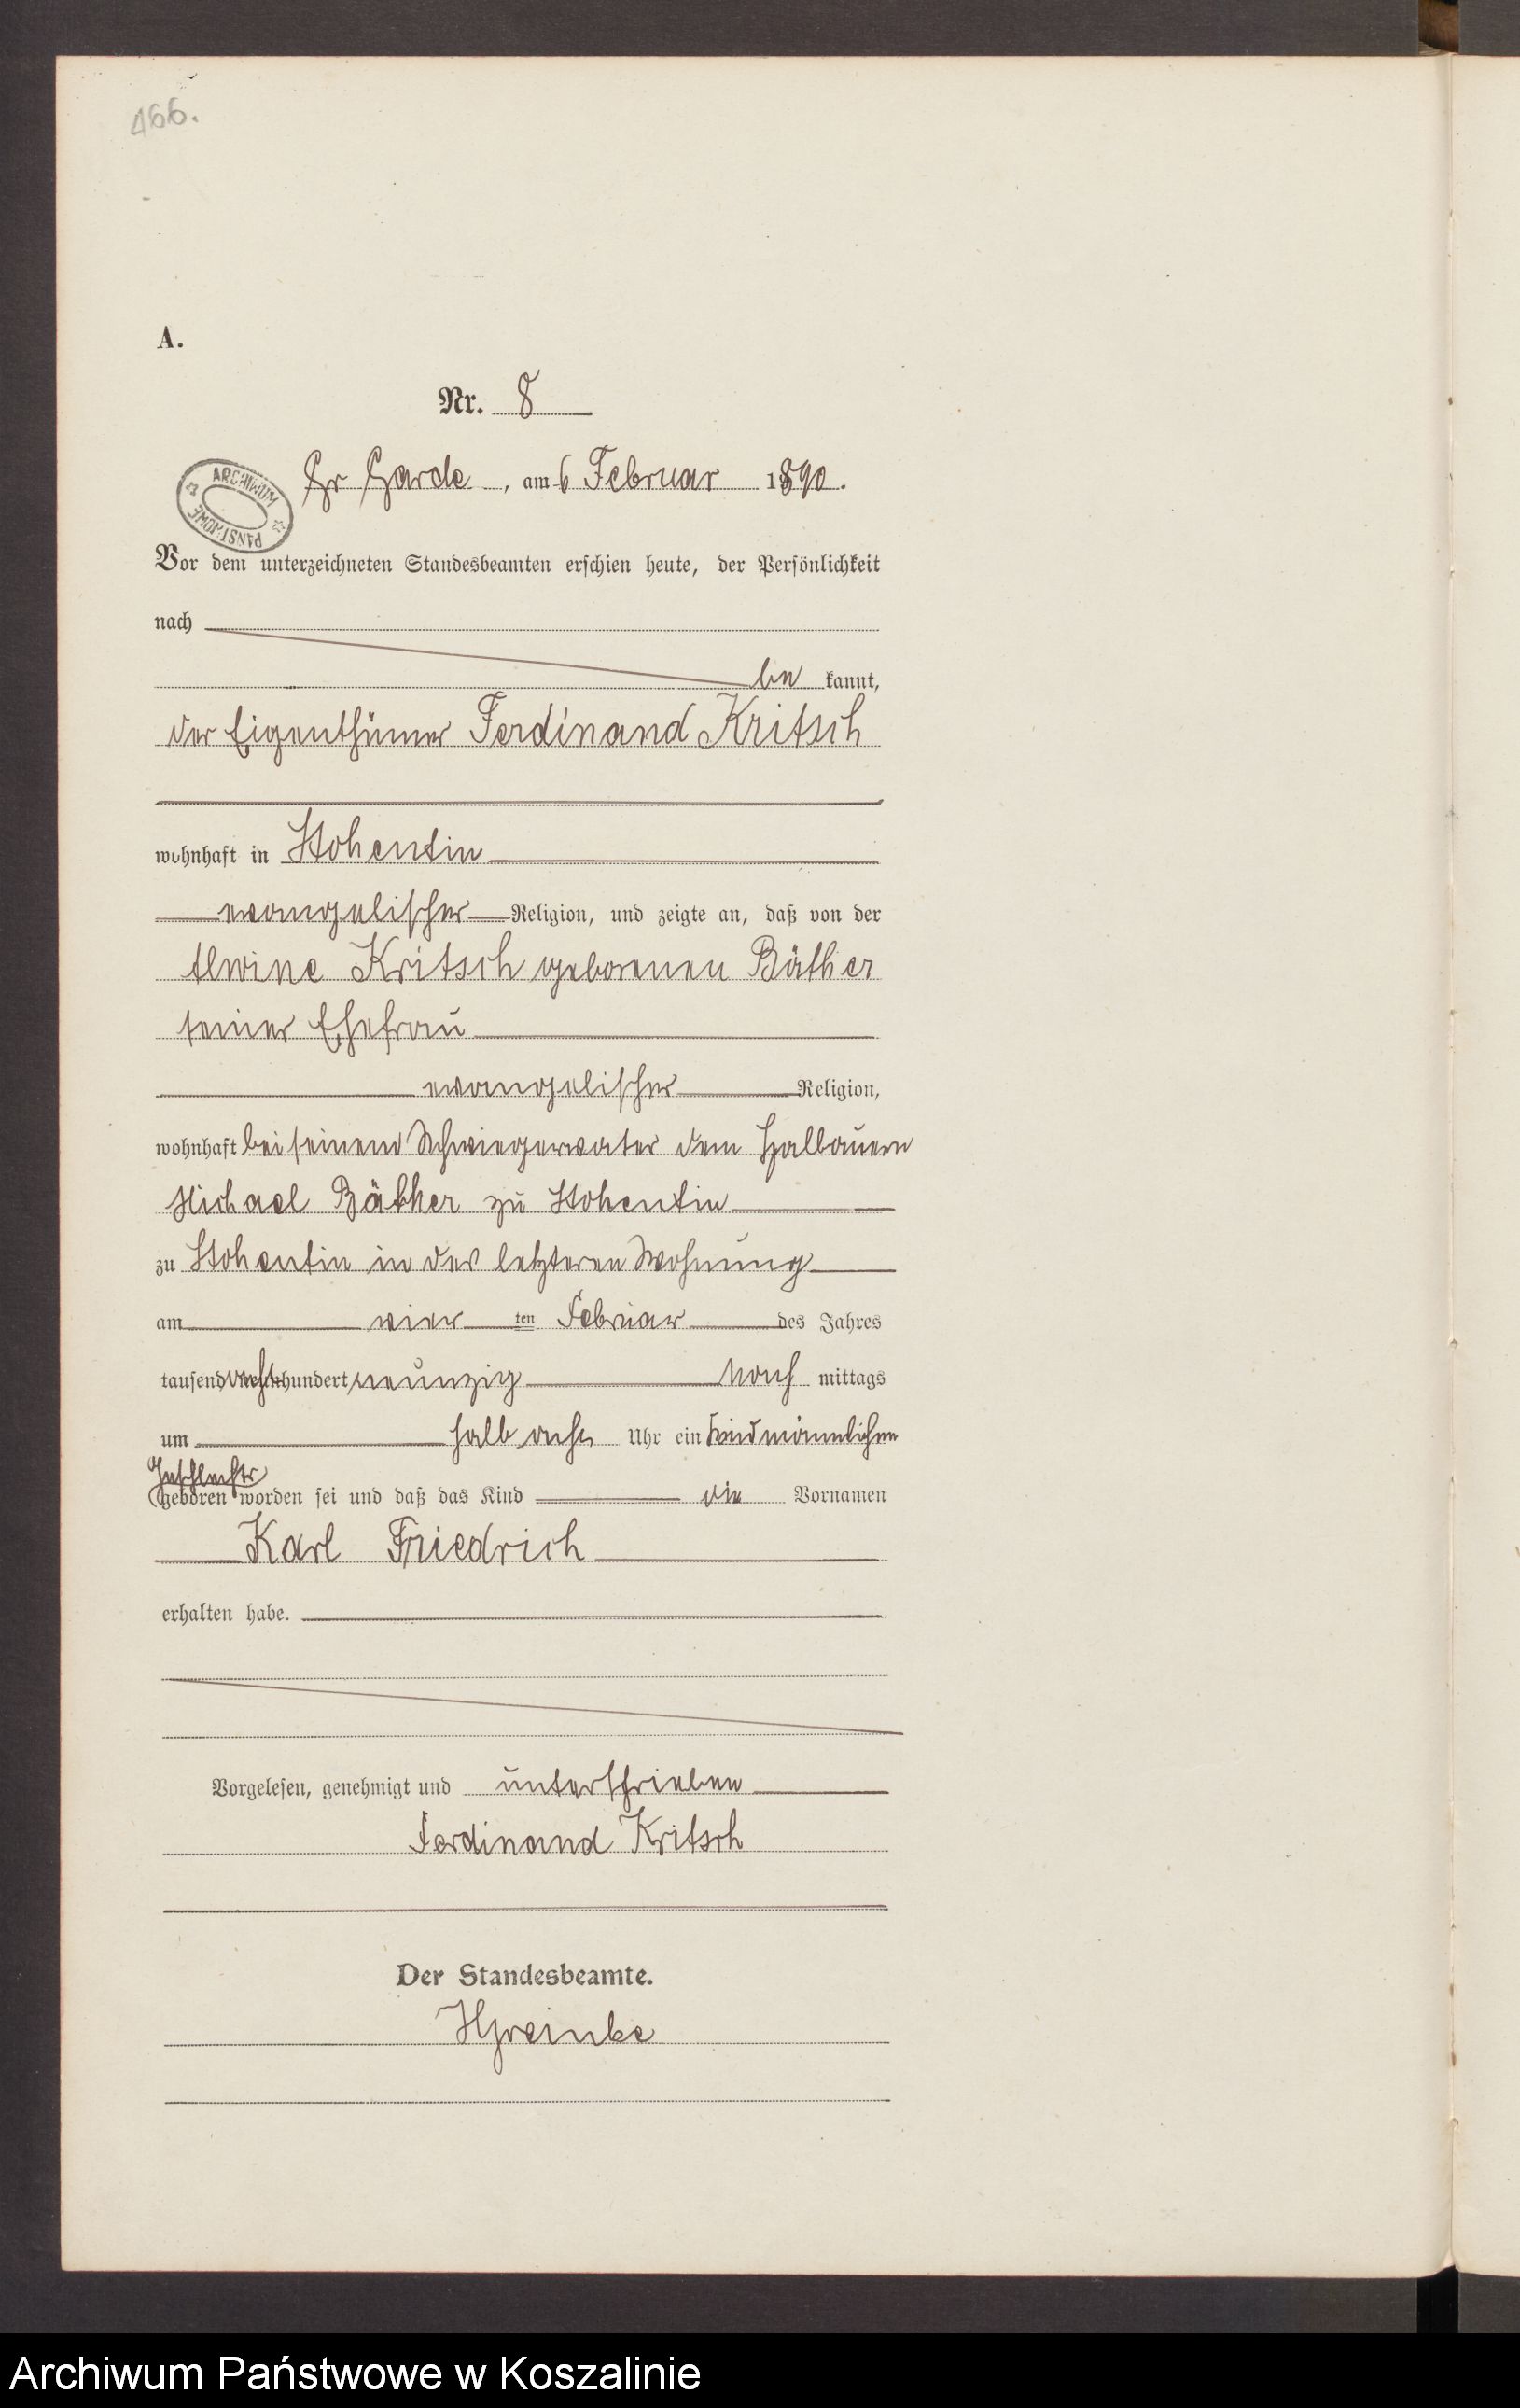 466.
A.
Nr. 8
ARCHIWUM PAŃSTWOWE
Gr Garde, am 6 Februar 1890.
Vor dem unterzeichneten Standesbeamten erschien heute, der Persönlichkeit
nach
be kannt,
der Eigenthümer Ferdinand Kritsch
wohnhaft in Stohentin
evangelischer Religion, und zeigte an, daß von der
Alwine Kritsch geborenen Bäther
seiner Ehefrau
evangelischer Religion,
wohnhaft bei seinem Schwiegervater dem Halbauern
Michael Bäther zu Stohentin
zu Stohentin in des letzteren Wohnung
am vier ten Februar des Jahres
tausend acht hundert neunzig Nach mittags
um halb acht Uhr ein Kind männlichen
Geschlechts
geboren worden sei und daß das Kind die Vornamen
Karl Friedrich
erhalten habe.
Vorgelesen, genehmigt und unterschrieben
Ferdinand Kritsch
Der Standesbeamte.
Archiwum Państwowe w Koszalinie